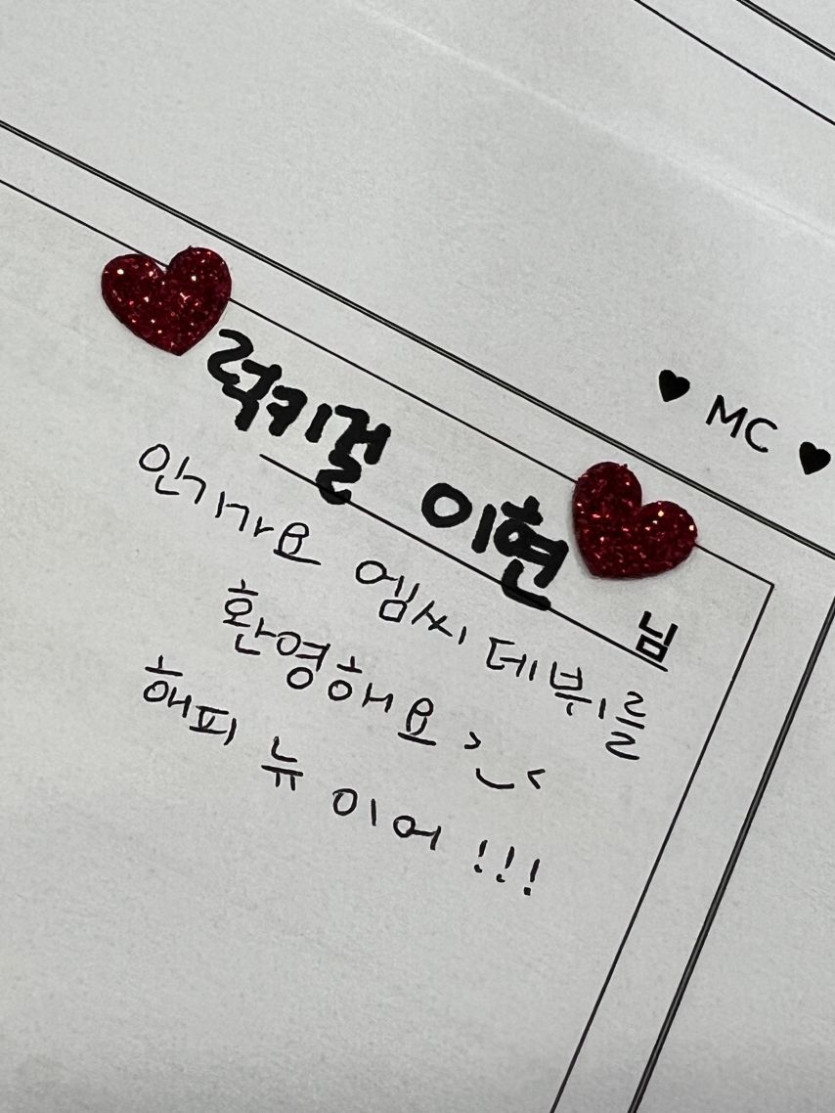 ♥ MC ♥
럭키걸 이현 님
인가가요 엠씨 데뷔를
환영해요 >‿<
해피 뉴 이어 !!!